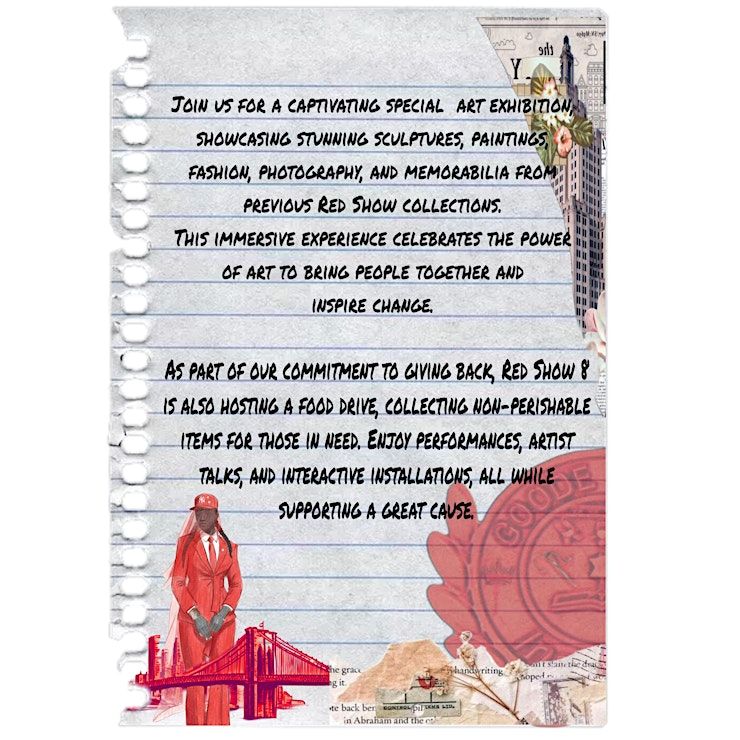 the
Y
Join us for a captivating special art exhibition,
showcasing stunning sculptures, paintings,
fashion, photography, and memorabilia from
previous Red Show collections.
This immersive experience celebrates the power
of art to bring people together and
inspire change.
As part of our commitment to giving back, Red Show 8
is also hosting a food drive, collecting non-perishable
items for those in need. Enjoy performances, artist
talks, and interactive installations, all while
supporting a great cause.
GOODE
he grac
handwriting
g it.
oped
ote back ber
in Abraham and the
CONTROL
LTD.